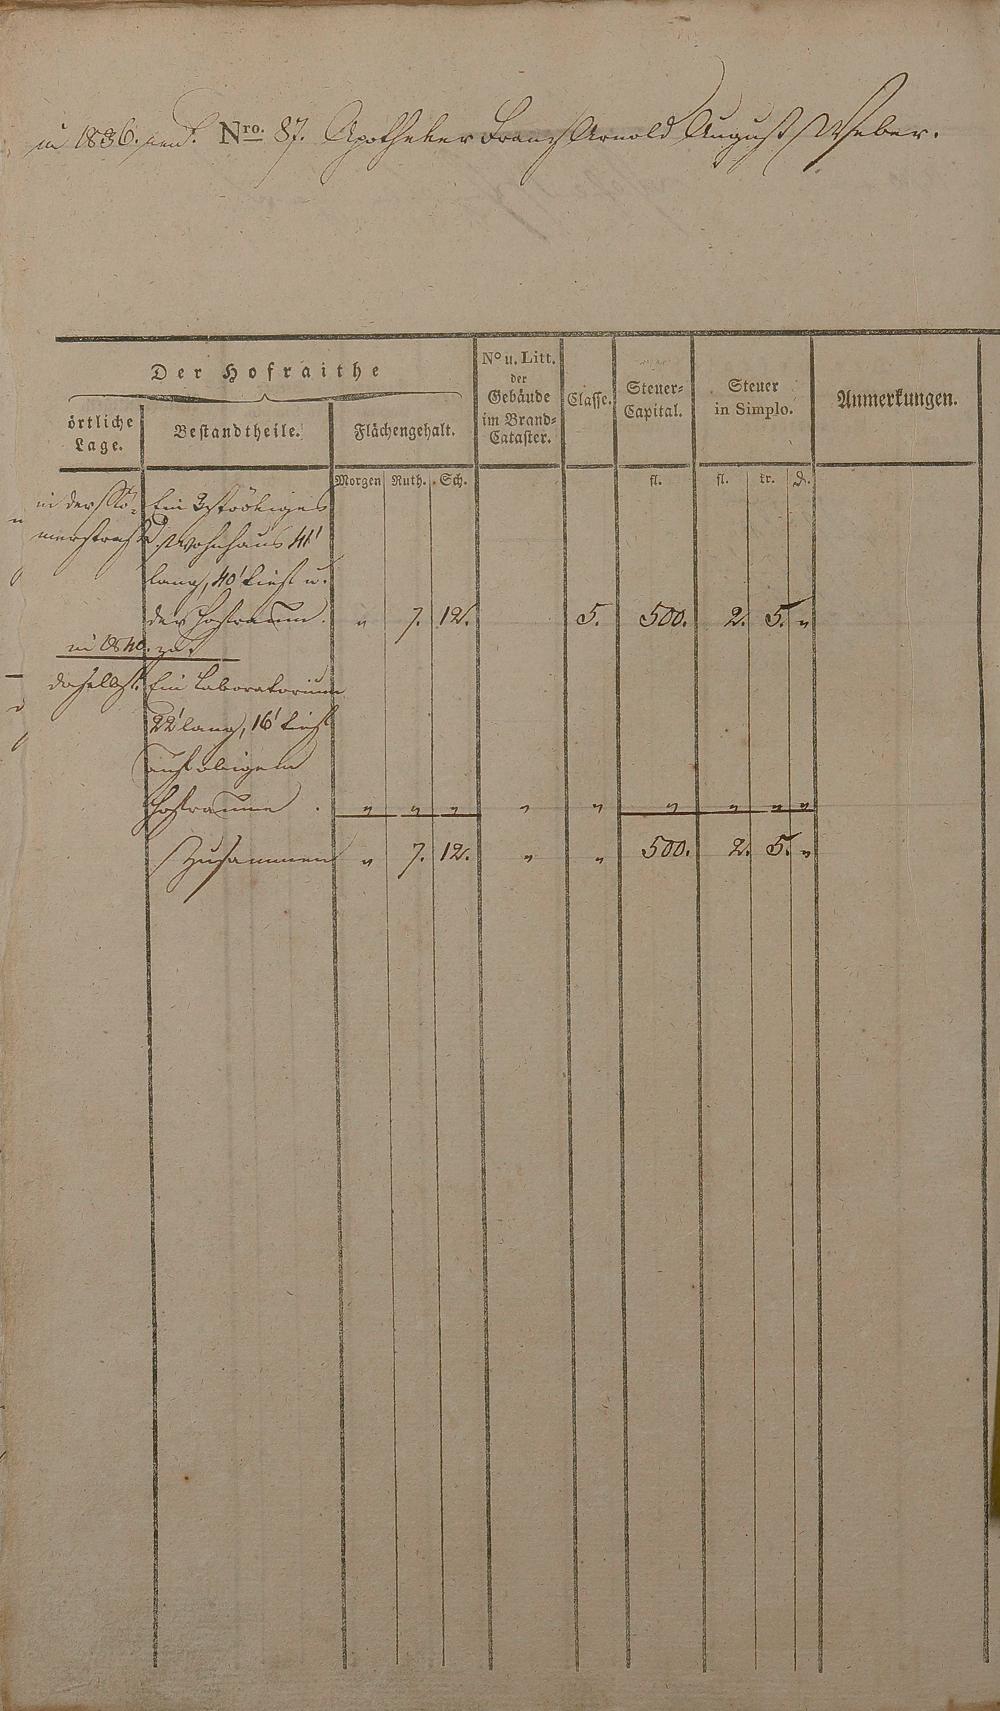 in 1836. Nro. 87. Apotheker Franz Arnold August Weber.
Der Hofraithe
örtliche Lage.
Bestandtheile.
Flächengehalt.
No u. Litt. der Gebäude im Brand-Cataster.
Classe.
Steuer-Capital.
Steuer in Simplo.
Anmerkungen.
Morgen Ruth. Sch. fl. fl. kr. d.
in der Rö- Ein 2stöckiges
merstraße Wohnhaus 41'
lang, 40' tief u.
der Hofraum. " 7. 12. 5. 500. 2. 5. "
in 1840. zu.
daselbst. Ein Laboratorium
22' lang, 16' tief
auf obigem
Hofraume. " " " " " " " " "
Zusammen " 7. 12. " " 500. 2. 5. "